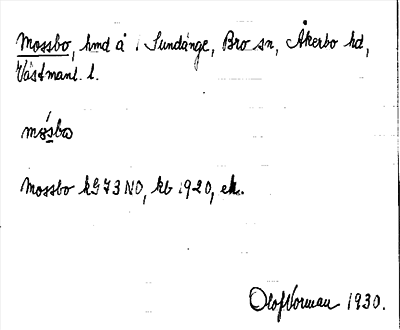 Mossbo, hmd å Sundänge, Bro sn, Åkerbo hd,
Västmanl. l.
mòsbo
Mossbo kG73NO, kb 1920, ek.
Olof Norman 1930.